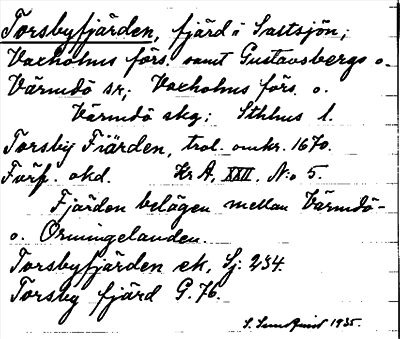 Torsbyfjärden, fjärd i Saltsjön;
Vaxholms förs. samt Gustavsbergs o.
Värmdö sr; Vaxholms förs. o.
Värmdö skg; Sthlms l.
Torsby Fiärden, trol. omkr. 1670.
Förf. okd. Kr A. XXII. N:o 5.
Fjärden belägen mellan Värmdö-
o. Ormingelanden.
Torsbyfjärden ek, Sj. 234.
Torsby fjärd G. 76.
S. Sundquist 1935.